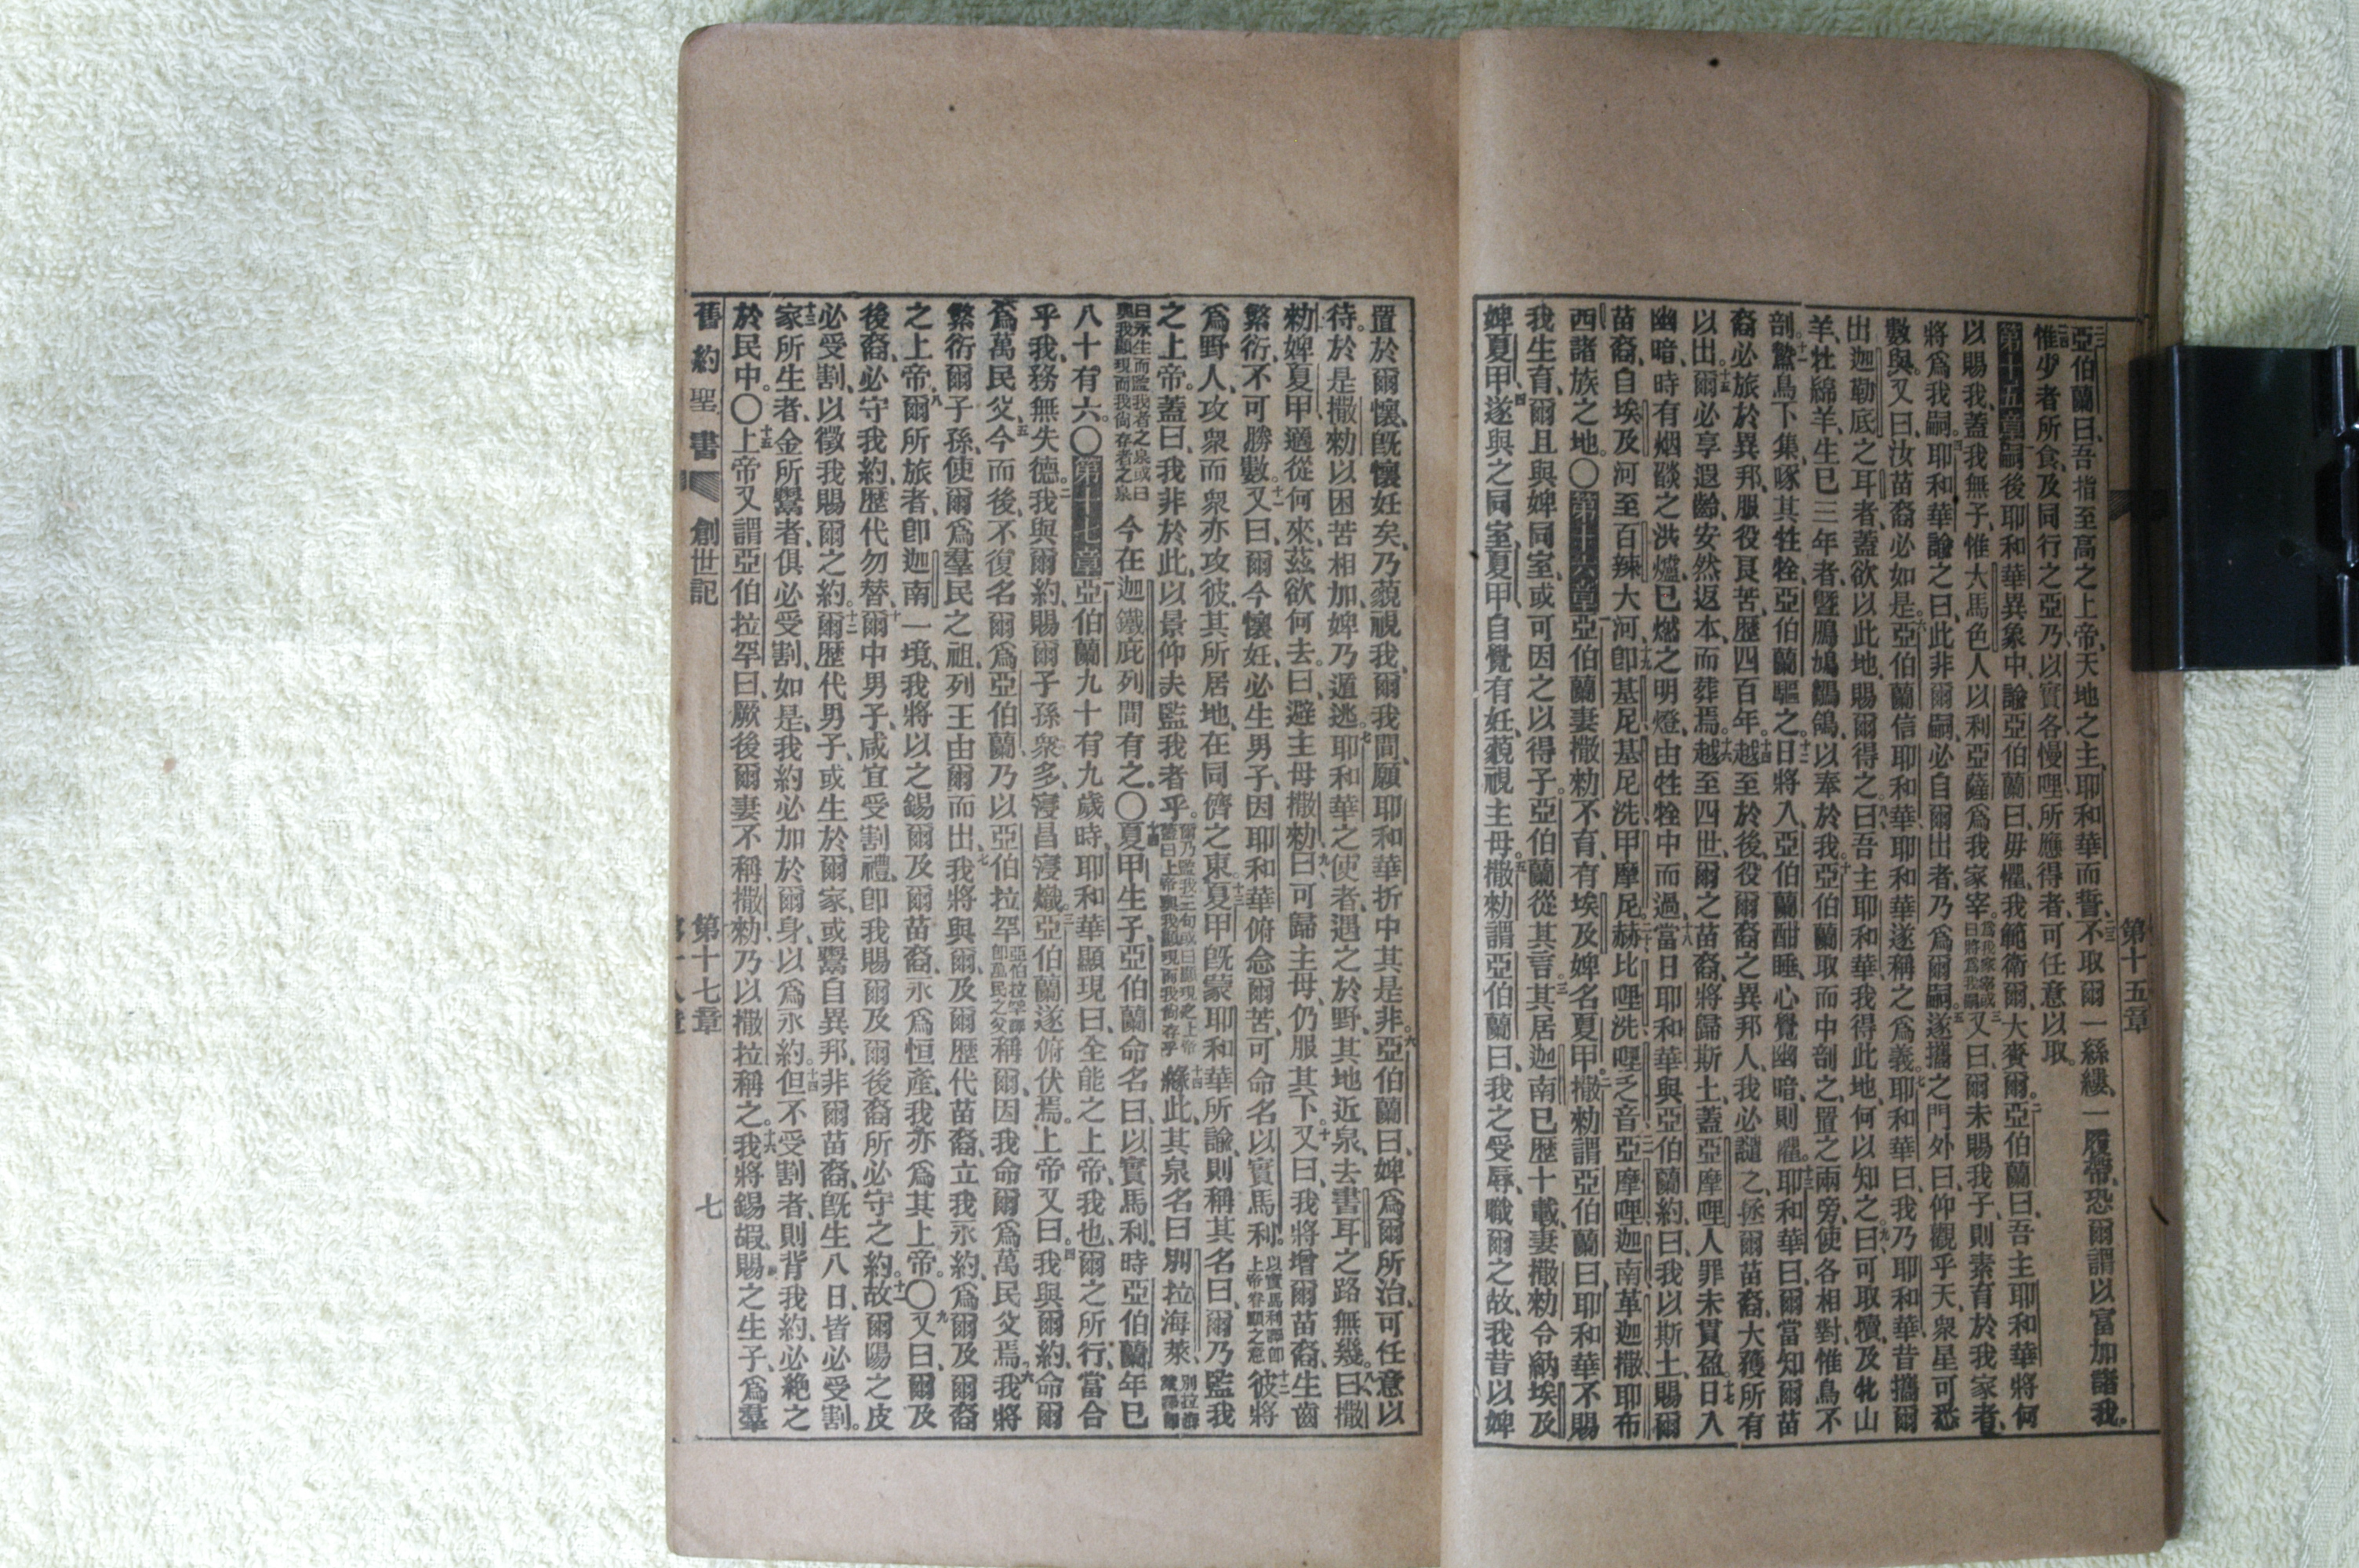 第十五章
亞伯蘭曰、吾指至高之上帝、天地之主、耶和華而誓、三不取爾一絲縷、一履帶、恐爾謂以富加諸我。
惟少者所食、及同行之亞乃、以實各、慢哩所應得者、可任意以取。
第十五章嗣後耶和華異象中、諭亞伯蘭曰、毋懼、我範衛爾、大賚爾。二亞伯蘭曰、吾主耶和華將何
以賜我、蓋我無子、惟大馬色人以利亞薩爲我家宰。爲我家宰或曰將爲我嗣三又曰、爾未賜我子、則素育於我家者、
將爲我嗣。四耶和華諭之曰、此非爾嗣、必自爾出者、乃爲爾嗣。五遂攜之門外、曰、仰觀乎天、衆星可悉
數與。又曰、汝苗裔必如是。六亞伯蘭信耶和華、耶和華遂稱之爲義。七耶和華曰、我乃耶和華、昔攜爾
出迦勒底之耳者、蓋欲以此地、賜爾得之。八曰、吾主耶和華、我得此地、何以知之。九曰、可取犢、及牝山
羊、牡綿羊、生已三年者、曁鳲鳩鶵鴿、以奉於我。十亞伯蘭取而中剖之、置之兩旁、使各相對、惟鳥不
剖。十一鷙鳥下集、啄其牲牷、亞伯蘭驅之。十二日將入、亞伯蘭酣睡、心覺幽暗、則懼。十三耶和華曰、爾當知爾苗
裔必旅於異邦、服役艮苦、歷四百年。十四越至於後、役爾裔之異邦人、我必譴之、拯爾苗裔、大獲所有
以出。十五爾必享遐齡、安然返本、而葬焉。十六越至四世、爾之苗裔、將歸斯土、蓋亞摩哩人罪未貫盈。十七日入
幽暗、時有烟燄之洪爐、已燃之明燈、由牲牷中而過。十八當日耶和華與亞伯蘭約曰、我以斯土、賜爾
苗裔、自埃及河、至百辣大河、十九卽基尼、基尼洗、甲摩尼、二十赫、比哩洗、哩乏音、二一亞摩哩、迦南、革迦撒、耶布
西諸族之地。〇第十六章亞伯蘭妻撒勑不育、有埃及婢名夏甲。二撒勑謂亞伯蘭曰、耶和華不賜
我生育、爾且與婢同室、或可因之以得子。亞伯蘭從其言。三其居迦南已歷十載、妻撒勑令納埃及
婢夏甲、四遂與之同室、夏甲自覺有妊、藐視主母。五撒勑謂亞伯蘭曰、我之受辱、職爾之故、我昔以婢
置於爾懷、旣懷妊矣、乃藐視我、爾我間、願耶和華折中其是非。六亞伯蘭曰、婢爲爾所治、可任意以
待。於是撒勑以困苦相加、婢乃遁逃。七耶和華之使者、遇之於野、其地近泉、去書耳之路無幾。八曰、撒
勑婢夏甲、適從何來、茲欲何去。曰、避主母撒勑。九曰、可歸主母、仍服其下。十又曰、我將增爾苗裔、生齒
繁衍、不可勝數。十一又曰、爾今懷妊、必生男子、因耶和華俯念爾苦、可命名以實馬利。以實馬利譯卽上帝眷顧之意十二彼將
爲野人、攻衆而衆亦攻彼、其所居地、在同儕之東。十三夏甲旣蒙耶和華所諭、則稱其名曰、爾乃監我
之上帝。蓋曰、我非於此、以景仰夫監我者乎。爾乃監我二句或曰顯現之上帝蓋曰上帝與我顯現而我尙存乎十四緣此、其泉名曰別拉海萊、別拉海萊譯卽
曰永生而監我者之泉或曰與我顯現而我尙存者之泉今在迦鐵庇列間有之。〇十五夏甲生子、亞伯蘭命名曰以實馬利。時亞伯蘭年已
八十有六。〇第十七章一亞伯蘭九十有九歲時、耶和華顯現曰、全能之上帝、我也、爾之所行、當合
乎我、務無失德。二我與爾約、賜爾子孫衆多、寖昌寖熾。三亞伯蘭遂俯伏焉。上帝又曰。四我與爾約、命爾
爲萬民父、五今而後、不復名爾爲亞伯蘭、乃以亞伯拉罕亞伯拉罕譯卽萬民之父稱爾、因我命爾爲萬民父焉。六我將
繁衍爾子孫、使爾爲羣民之祖、列王由爾而出、七我將與爾、及爾歷代苗裔、立我永約、爲爾及爾裔
之上帝。八爾所旅者、卽迦南一境、我將以之錫爾及爾苗裔、永爲恒產、我亦爲其上帝。〇九又曰、爾及
後裔、必守我約、歷代勿替、十爾中男子、咸宜受割禮、卽我賜爾及爾後裔所必守之約。十一故爾陽之皮
必受割、以徵我賜爾之約。十二爾歷代男子、或生於爾家、或鬻自異邦、非爾苗裔、旣生八日、皆必受割。
十三家所生者、金所鬻者、俱必受割、如是、我約必加於爾身、以爲永約。十四但不受割者、則背我約、必絶之
於民中。〇十五上帝又謂亞伯拉罕曰、厥後爾妻不稱撒勑、乃以撒拉稱之。十六我將錫嘏、賜之生子、爲羣
舊約聖書 創世記 第十七章 七